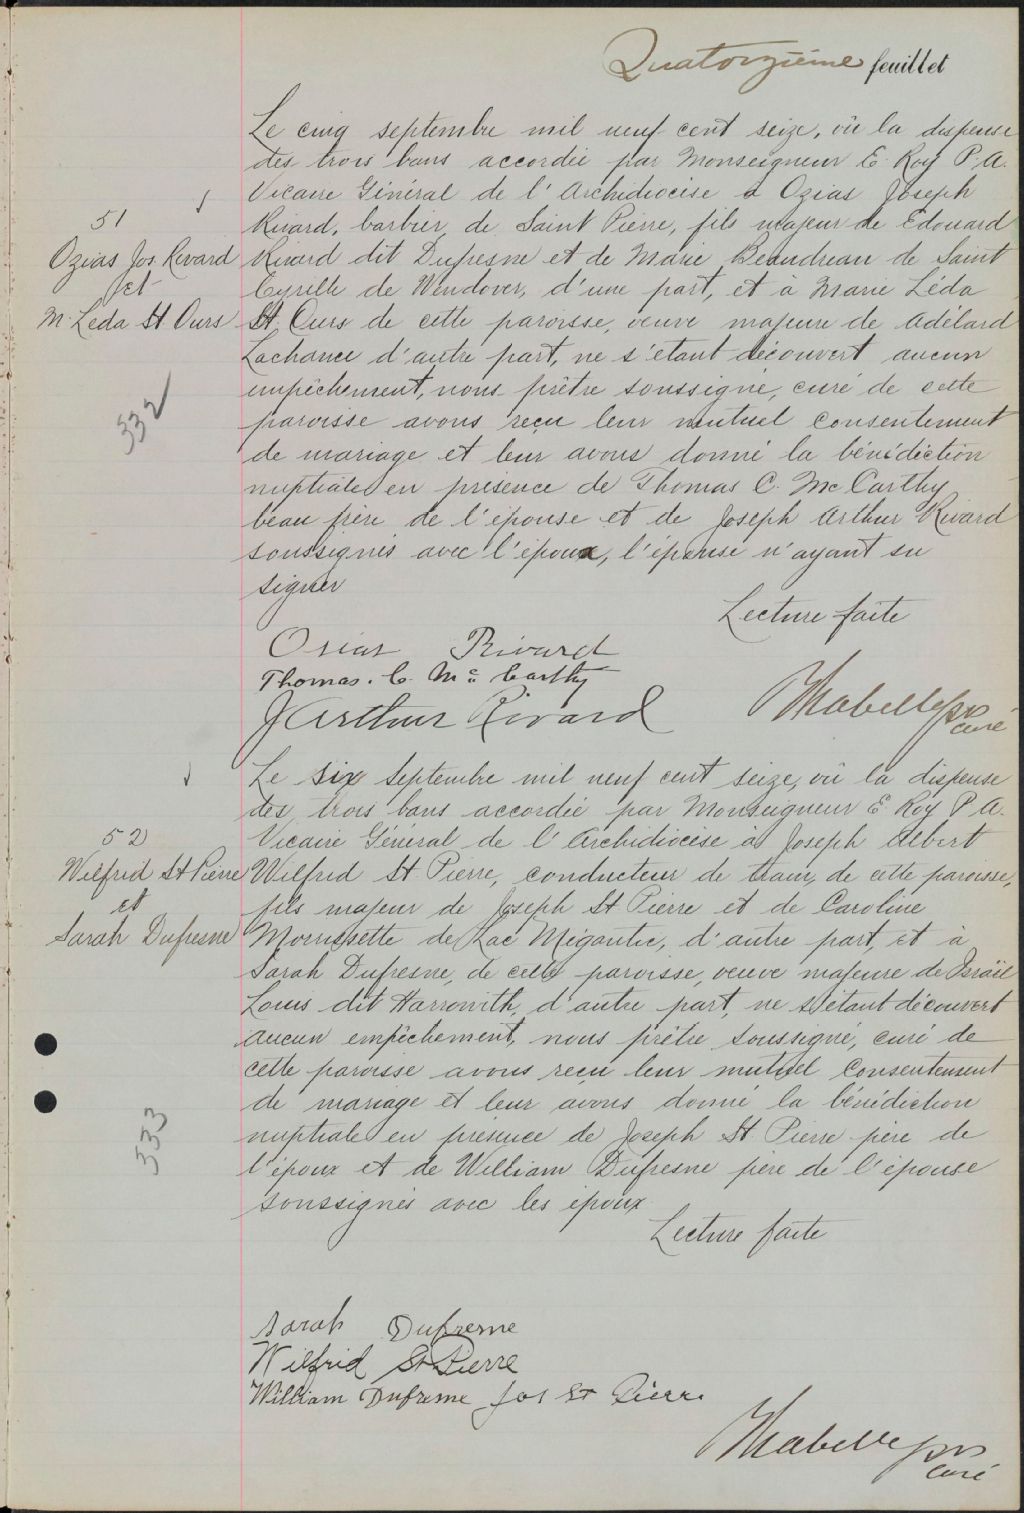 Quatorzième feuillet
Le cinq septembre mil neuf cent seize, vû la dispense
des trois bans accordée par Monseigneur E. Roy P. A.
Vicaire Général de l'Archidiocèse à Ozias Joseph
Rivard, barbier, de Saint Pierre, fils majeur de Edouard
Rivard dit Dufresne et de Marie Beaudreau de Saint
Cyrille de Wendover, d'une part, et à Marie Léda
St. Ours de cette paroisse, veuve majeure de Adélard
Lachance d'autre part, ne s'étant découvert aucun
empêchement, nous prêtre soussigné, curé de cette
paroisse avons reçu leur mutuel consentement
de mariage et leur avons donné la bénédiction
nuptiale en présence de Thomas C. McCarthy
beau frère de l'épouse et de Joseph Arthur Rivard
soussignés avec l'époux, l'épouse n'ayant su
signer
Lecture faite
51
Ozias Jos. Rivard
et
M. Leda St Ours
332
Osias Rivard
Thomas. C. Mc Carthy
J Arthur Rivard
curé
Le six Septembre mil neuf cent seize, vû la dispense
des trois bans accordée par Monseigneur E. Roy P. A.
Vicaire Général de l'Archidiocèse à Joseph Albert
Wilfrid St Pierre, conducteur de train, de cette paroisse,
fils majeur de Joseph St Pierre et de Caroline
Morrissette de Lac Mégantic, d'autre part, et à
Sarah Dufresne, de cette paroisse, veuve majeure de Israël
Louis dit d'autre part, ne s'étant découvert
aucun empêchement, nous prêtre soussigné, curé de
cette paroisse avons reçu leur mutuel consentement
de mariage et leur avons donné la bénédiction
nuptiale en présence de Joseph St. Pierre père de
l'époux et de William Dufresne père de l'épouse
soussignés avec les époux
Lecture faite
52
Wilfrid St Pierre
et
Sarah Dufresne
333
Sarah Dufresne
Wilfrid St Pierre
William Dufresne Jos St Pierre
curé